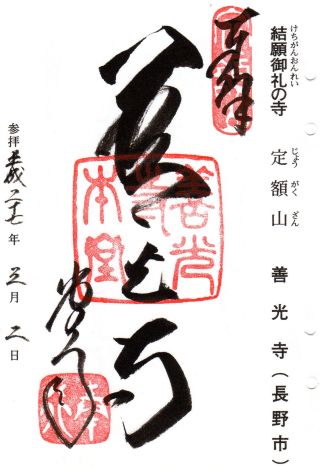 けちがんおんれい
結願御礼の寺
じょうがくざん
定額山 善光寺(長野市)
奉拝
善光寺
善光寺本堂
参拝 平成二十七年 三月 二日